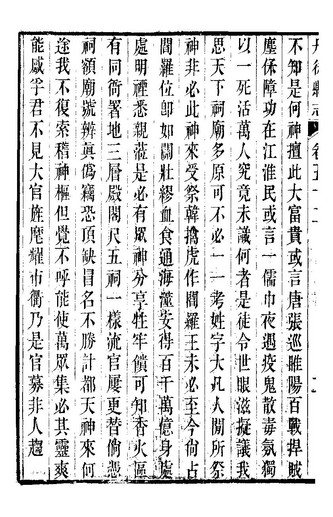 丹徒縣志 卷五十二
不知是何神擅此大富貴或言唐張巡睢陽百戰捍賊
塵保障功在江淮民或言一儒巾夜遇疫鬼散毒氛獨
以一死活萬人究竟未識何者是徒令世眼滋擬議我
思天下祠廟多原可不必一一考姓字大凡人間所祭
神非必此神來受祭韓擒虎作閻羅王未必至今尙占
閻羅位卽如關壯繆血食通海澨安得百千萬億身處
處明禋悉親蒞是必有眾神分享牲牢饋可知香火區
有同衙署地三層殿閣尺五祠一樣流官屢更替倘憑
祠額廟號辨眞僞竊恐頂缺冒名不勝計都天神來何
途我不復索稽神樞但覺不呼能使萬眾集必其靈爽
能感孚君不見大官旌麾耀市衢乃是官募非人趨